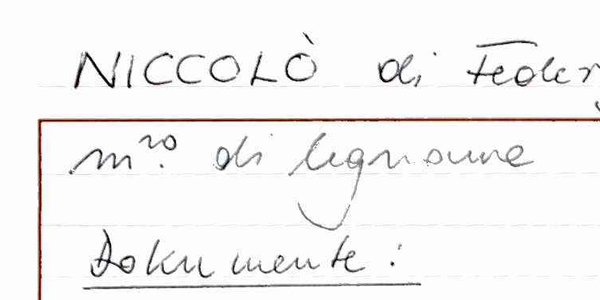 NICCOLÒ di
mro. di legname
Dokumente: